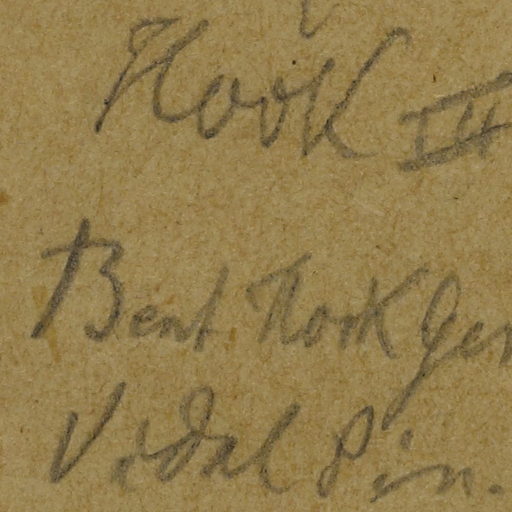 Hook III
Bent Hook Gen
Vidal Pin.